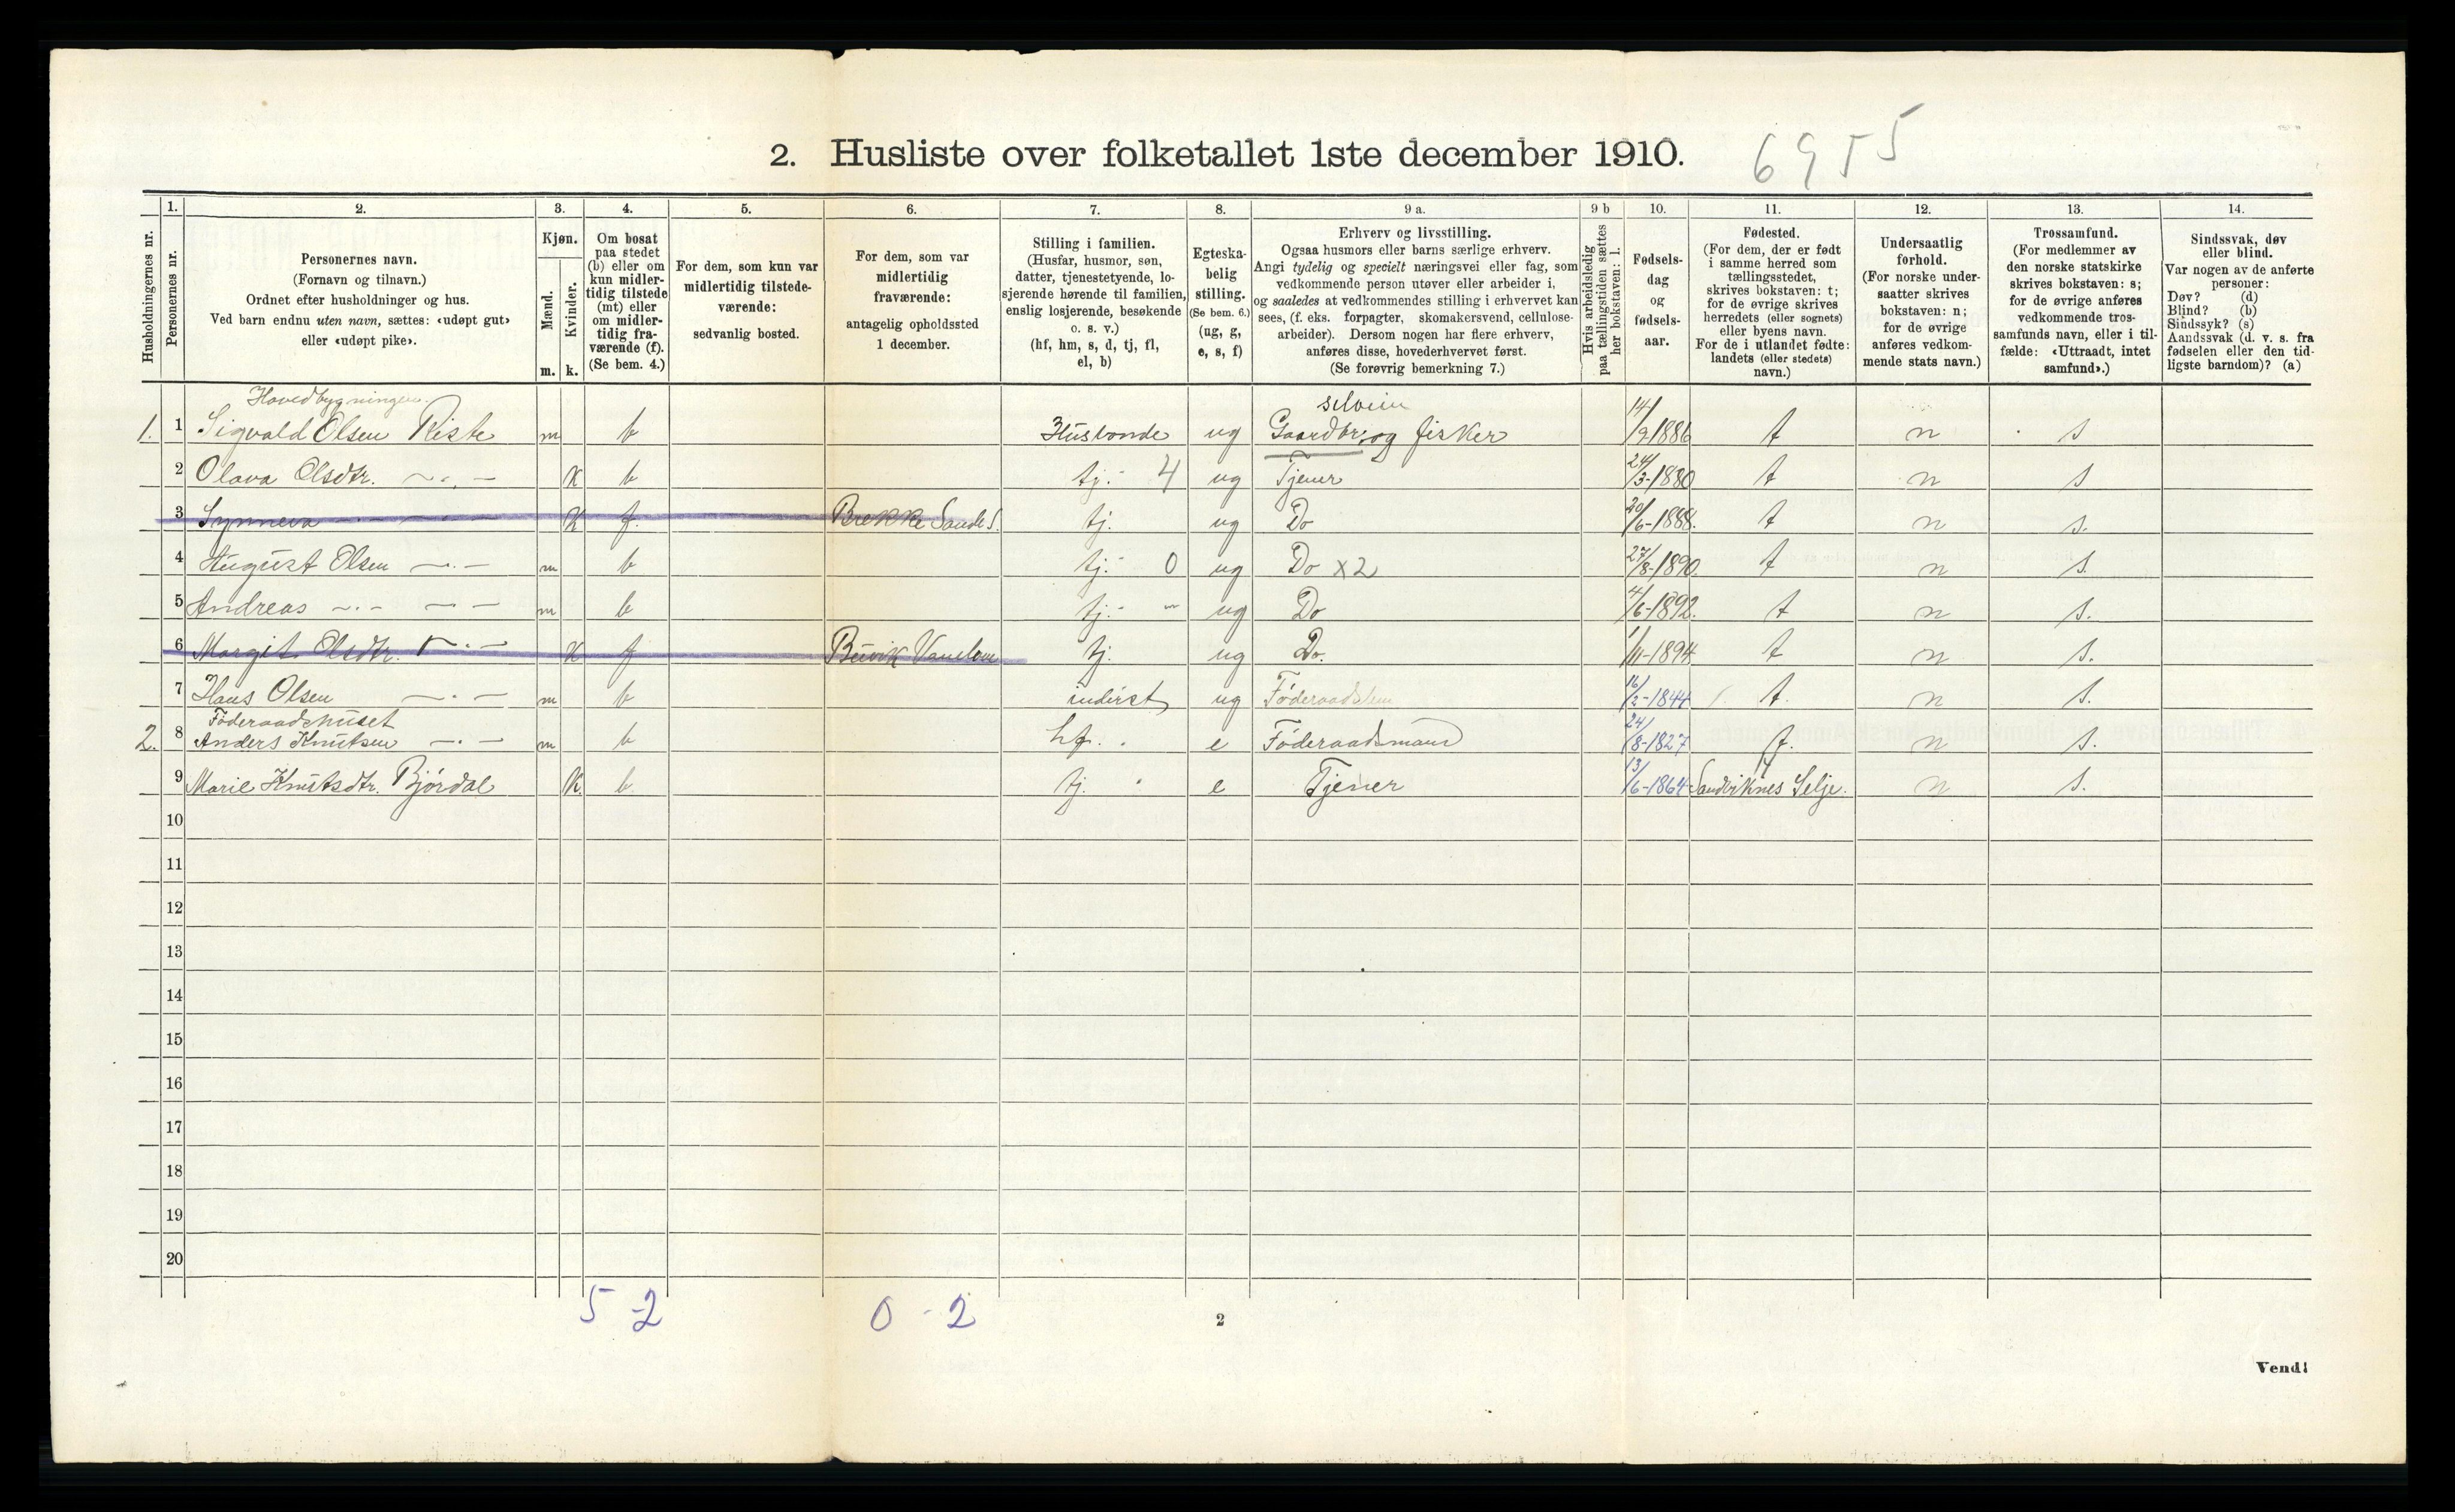 2. Husliste over folketallet 1ste december 1910.
6955
Husholdningernes nr.
1.
Personernes nr.
2.
Personernes navn.
(Fornavn og tilnavn.)
Ordnet efter husholdninger og hus.
Ved barn endnu uten navn, sættes: «udøpt gut»
eller «udøpt pike».
3.
Kjøn.
Mænd.
Kvinder.
m. k.
4.
Om bosat
paa stedet
(b) eller om
kun midler-
tidig tilstede
(mt) eller
om midler-
tidig fra-
værende (f).
(Se bem. 4.)
5.
For dem, som kun var
midlertidig tilstede-
værende:
sedvanlig bosted.
6.
For dem, som var
midlertidig
fraværende:
antagelig opholdssted
1 december.
7.
Stilling i familien.
(Husfar, husmor, søn,
datter, tjenestetyende, lo-
sjerende hørende til familien,
enslig losjerende, besøkende
o. s. v.)
(hf, hm, s, d, tj, fl,
el, b)
8.
Egteska-
belig
stilling.
(Se bem. 6.)
(ug, g,
e, s, f)
9 a.
Erhverv og livsstilling.
Ogsaa husmors eller barns særlige erhverv.
Angi tydelig og specielt næringsvei eller fag, som
vedkommende person utøver eller arbeider i,
og saaledes at vedkommendes stilling i erhvervet kan
sees, (f. eks. forpagter, skomakersvend, cellulose-
arbeider). Dersom nogen har flere erhverv,
anføres disse, hovederhvervet først.
(Se forøvrig bemerkning 7.)
9 b
Hvis arbeidsledig
paa tællingstiden sættes
her bokstaven: l.
10.
Fødsels-
dag
og
fødsels-
aar.
11.
Fødested.
(For dem, der er født
i samme herred som
tællingsstedet,
skrives bokstaven: t;
for de øvrige skrives
herredets (eller sognets)
eller byens navn.
For de i utlandet fødte:
landets (eller stedets)
navn.)
12.
Undersaatlig
forhold.
(For norske under-
saatter skrives
bokstaven: n;
for de øvrige
anføres vedkom-
mende stats navn.)
13.
Trossamfund.
(For medlemmer av
den norske statskirke
skrives bokstaven: s;
for de øvrige anføres
vedkommende tros-
samfunds navn, eller i til-
fælde: «Uttraadt, intet
samfund».)
14.
Sindssvak, døv
eller blind.
Var nogen av de anførte
personer:
Døv? (d)
Blind? (b)
Sindssyk? (s)
Aandssvak (d. v. s. fra
fødselen eller den tid-
ligste barndom)? (a)
Hovedbygningen.
selveiu
1. 1 Sigvald Olsen Riste m b Husbonde ug Gaardbr. og fisker 14/9 1886 t n s
2 Olava Olsdtr. —.— K b tj. 4 ug Tjener 24/3-1880 t n s
3 Synneva — — K f. Brekke Sande S. tj. ug Do 20/6-1888. t n s.
4 August Olsen —.— m b tj. 0 ug Do x2 27/8-1890. t n s.
5 Andreas —.— —.— m b tj. " ug Do 4/6-1892. t n s.
6 Margit Olsdtr. —.— K f tj. ug Do. 1/11-1894 t n s.
7 Hans Olsen —.— m b inderst ug Föderaads 16/2-1844 t. n s.
Föderaadshuset
2. 8 Anders Knutsen —.— m b hf. e Föderaadsmand 24/8-1827 t. n s.
9 Marie Knutsdtr. Björdal K. b tj. e Tjener 13/6-1864 Sandviknes Selje. n s.
10
11
12
13
14
15
16
17
18
19
20
5-2
0-2
2
Vend!